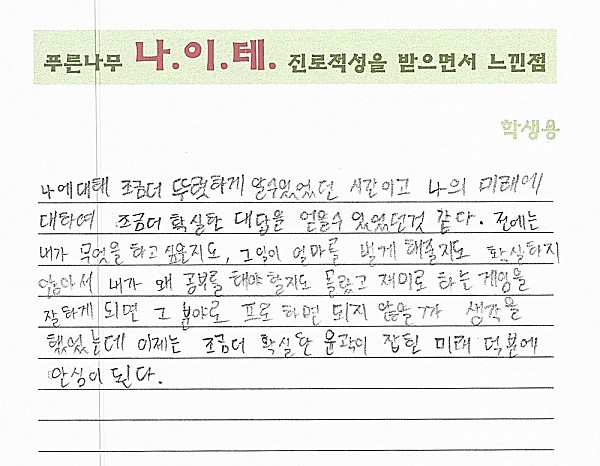 푸른나무 나.이.테. 진로적성을 받으면서 느낀점
학생용
나에대해 조금더 뚜렷하게 알수있었던 시간이고 나의 미래에
대하여 조금더 확실한 대답을 얻을수 있었던것 같다. 전에는
내가 무엇을 하고 싶은지도, 그일이 얼마를 벌게 해줄지도 확실하지
않아서 내가 왜 공부를 해야 할지도 몰랐고 재미로 하는 게임을
잘하게 되면 그 분야로 프로 하면 되지 않을까 생각을
했었는데 이제는 조금더 확실한 윤곽이 잡힌 미래 덕분에
안심이 된다.